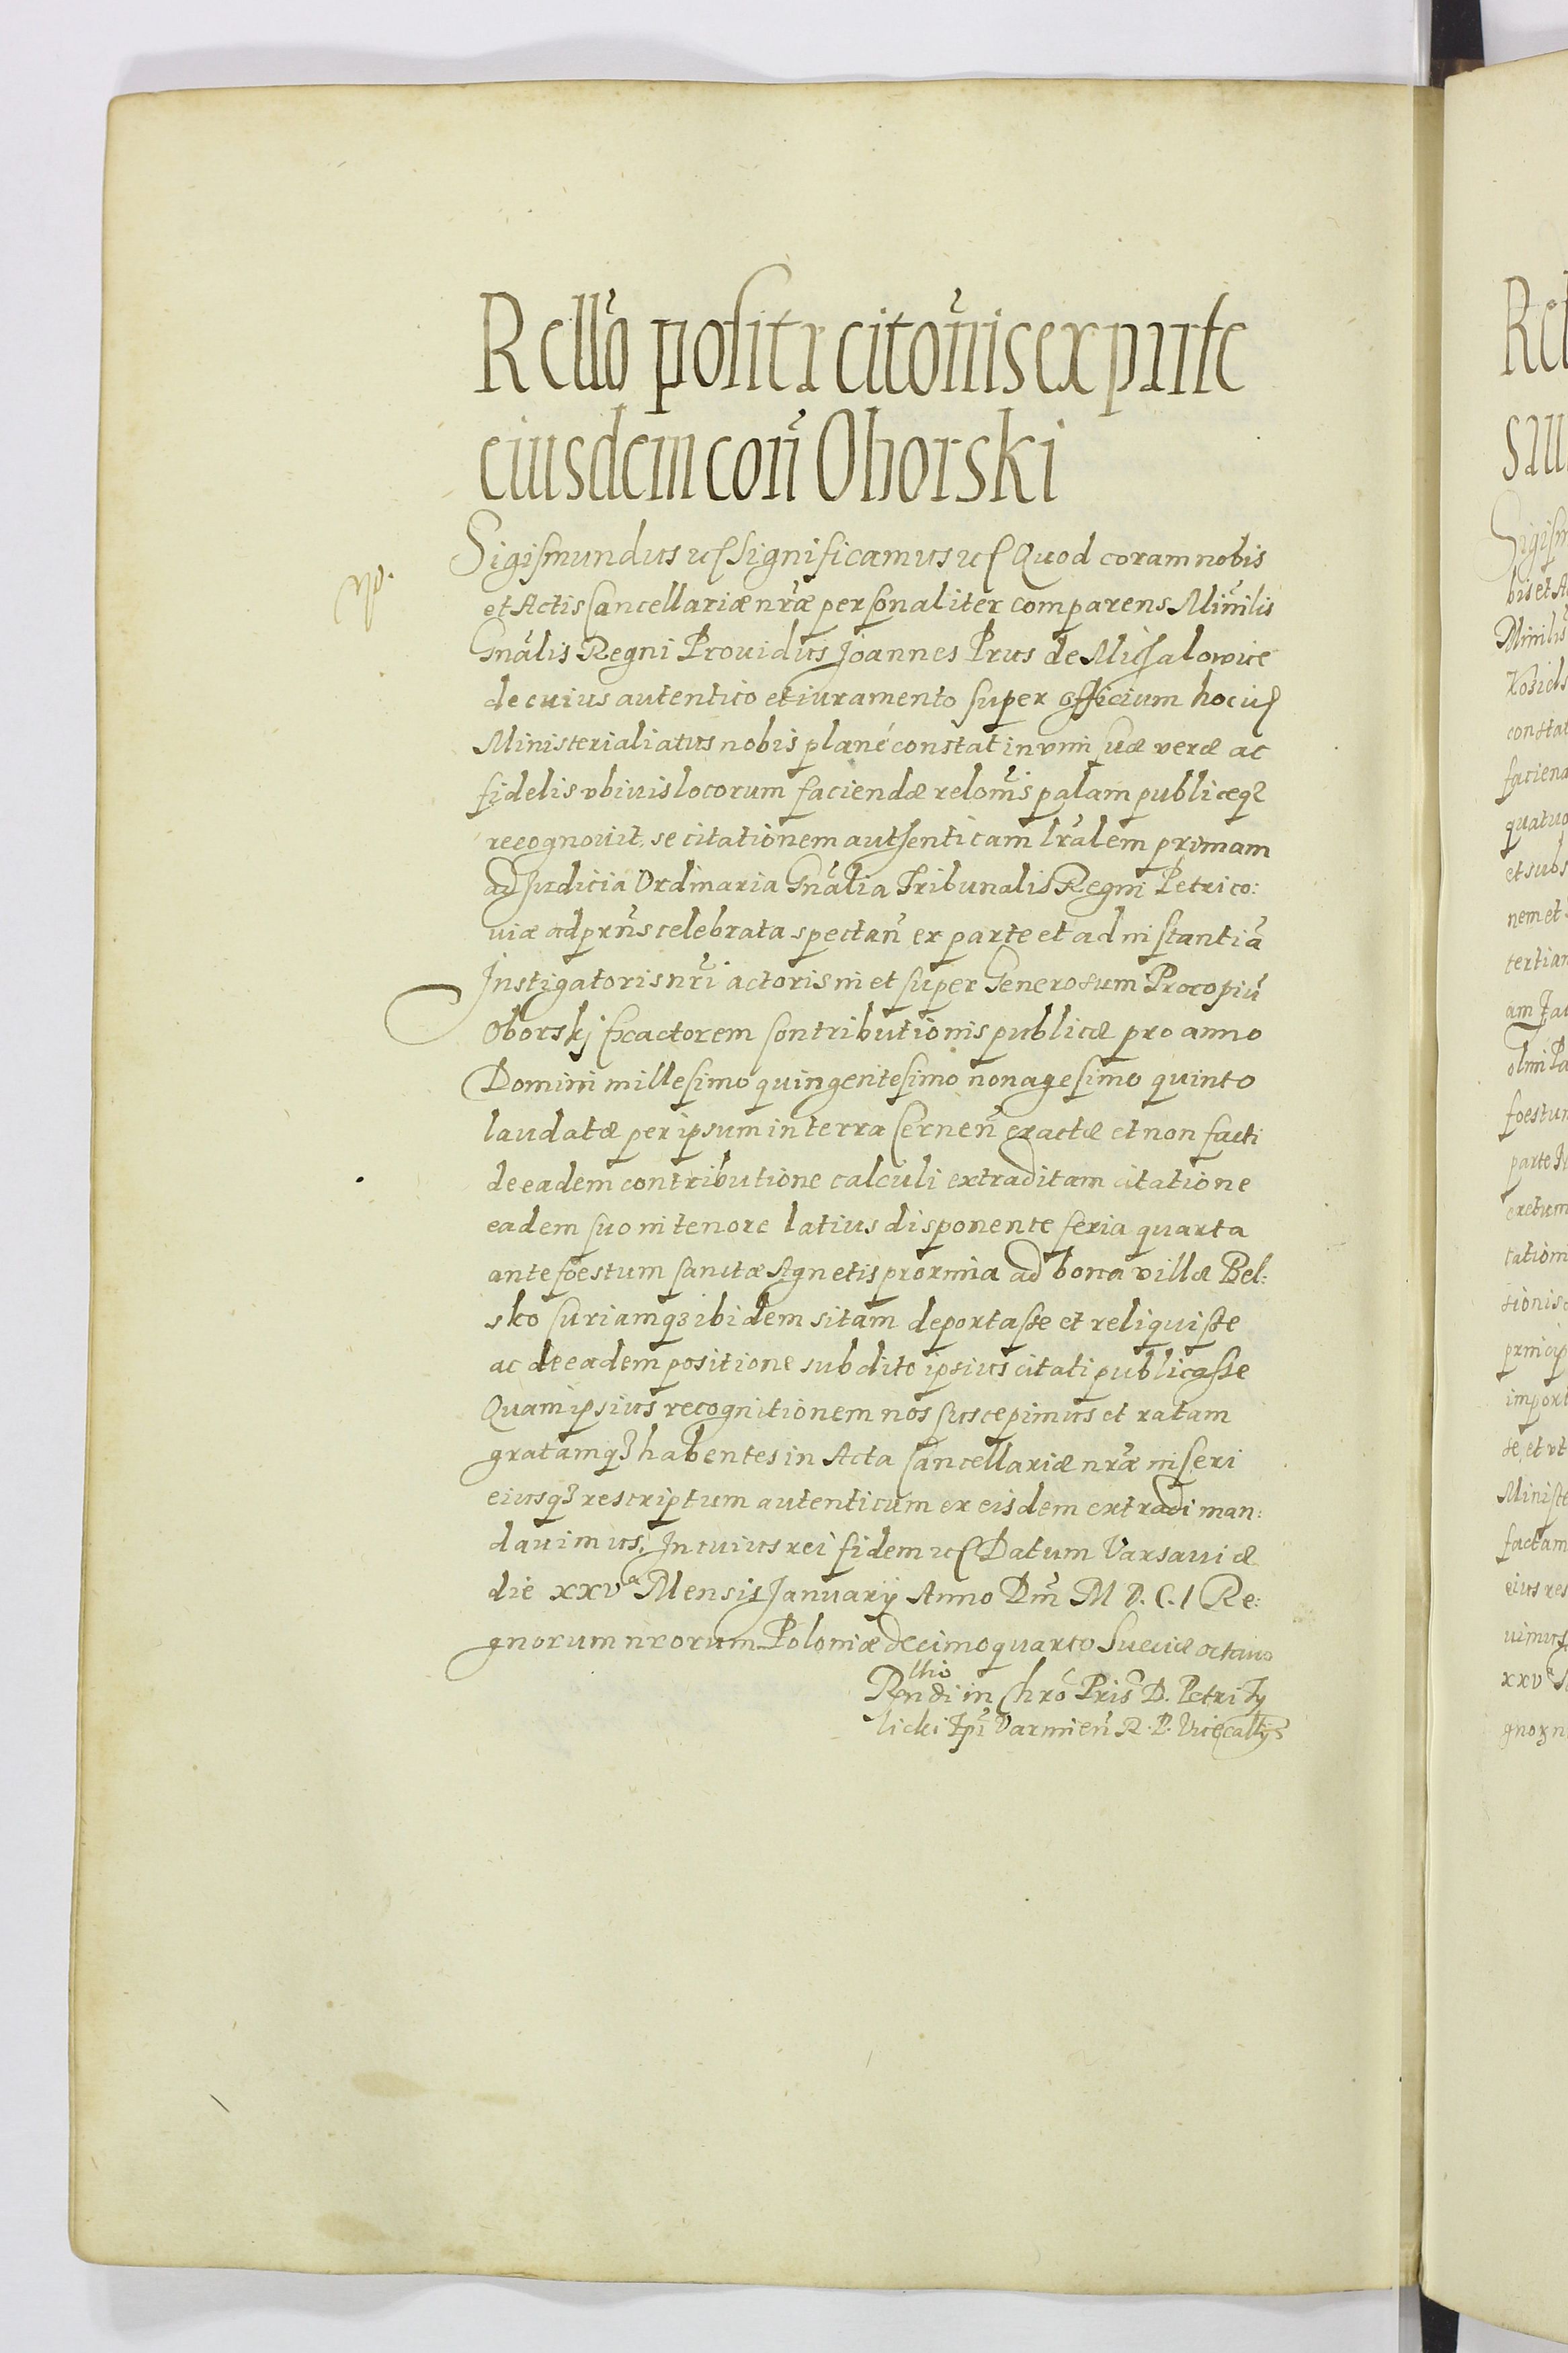 Rellõ positæ citõnis ex parte
eiusdem coñ Oborski
Sigismundus etc Significamus etc Quod coram nobis
et Actis Cancellariæ nrãe personaliter comparens Minĩlis
Gnãlis Regni Prouidus Joannes Prus de Michalowice
de cuius autentico et iuramento super officium hocius
Ministerialiatus nobis planè constat in vim suæ veræ ac
fidelis vbiuis locorum faciendæ relom̃s palam publiceq₃
recognouit, se citationem authenticam lrãlem primam
ad Judicia Ordinaria Gnãlia Tribunalis Regni Petrico:
uiæ ad prñs celebrata spectañ ex parte et ad instantiã
Instigatoris nrĩ actoris in et super Generosum Procopiũ
Oborskj Exactorem Contributionis publicæ pro anno
Domini millesimo quingentesimo nonagesimo quinto
laudatæ per ipsum in terra Cerneñ exactæ et non facti
de eadem contributione calculi extraditam citatione
eadem suo in tenore latius disponente feria quarta
ante foestum Sanctæ Agnetis proxima ad bona villæ Bel:
sko Curiamq₃ ibidem sitam deportasse et reliquisse
ac de eadem positione subdito ipsius citati publicasse
Quam ipsius recognitionem nos suscepimus et ratam
gratamq₃ habentes in Acta Cancellariæ nrãe inseri
eiusq₃ rescriptum autenticum ex eisdem extradi man:
dauimus, In cuius rei fidem etc Datum Varsauiæ
die xxvᵃ Mensis Januarij Anno Dñi M D.C.I Re:
gnorum nrorum Poloniæ decimoquarto Sueciæ octauo
Rellio
Rndi in Chrõ Pris D. Petri Ty
licki Epĩ Varmieñ R. P. Vicecallijs
Rel
sau
Sigism
bis et A
Minilis
Kosiels
constat
faciend
quatuo
et subs
nem et
tertian
am Jan
olmi Pa
foestum
parte In
cretum
tationi
tionis
princip
import
se, et vt
Ministe
factam
eius res
uimus
xxvᵃ
gnor n